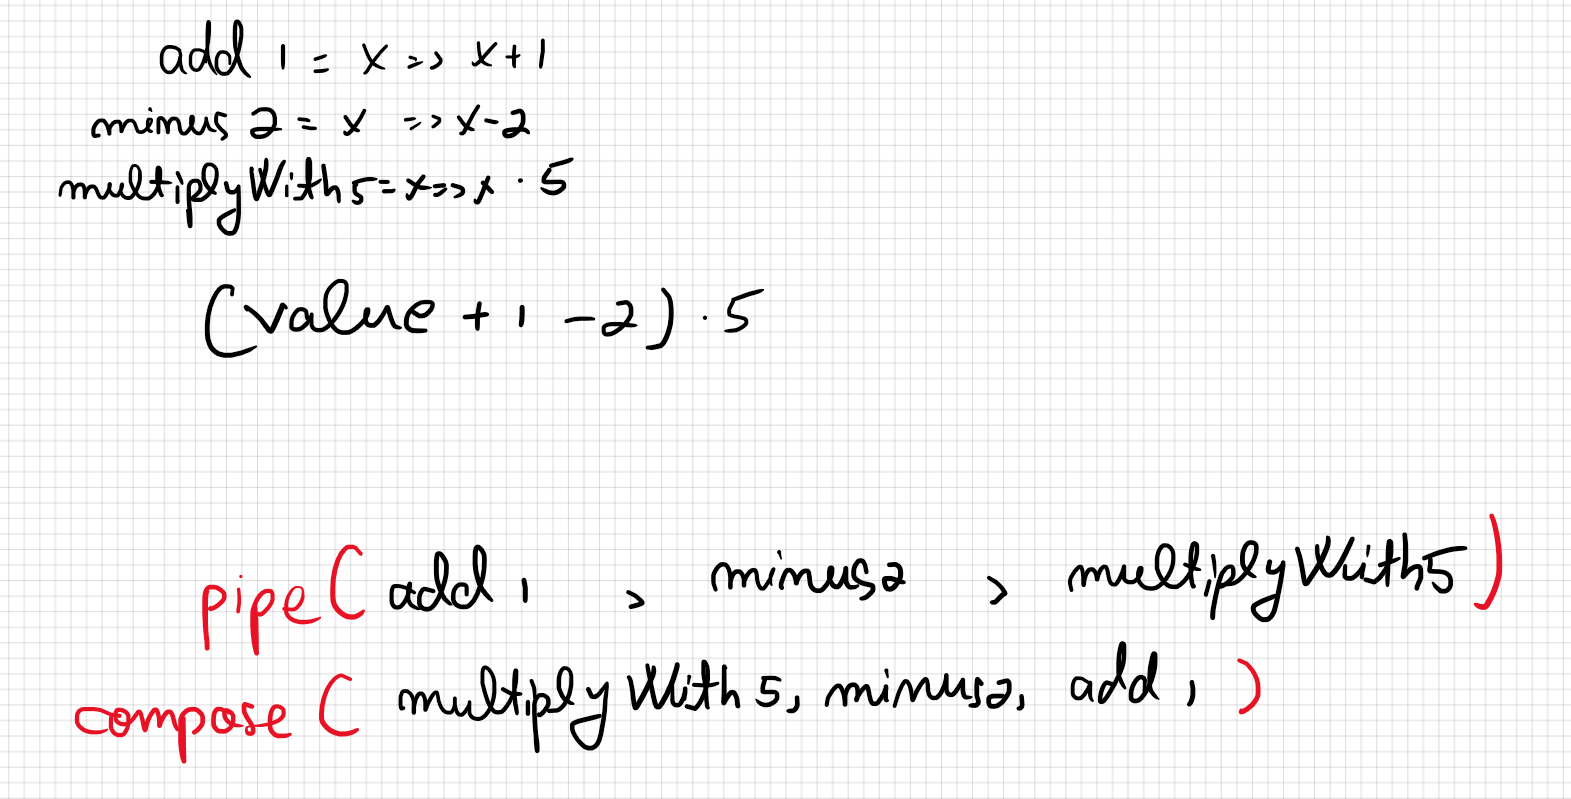 add 1 = x => x + 1
minus 2 = x => x - 2
multiplyWith5 = x => x · 5
(value + 1 - 2) · 5
pipe( add 1 , minus2 , multiplyWith5 )
compose ( multiplyWith5, minus2, add 1 )